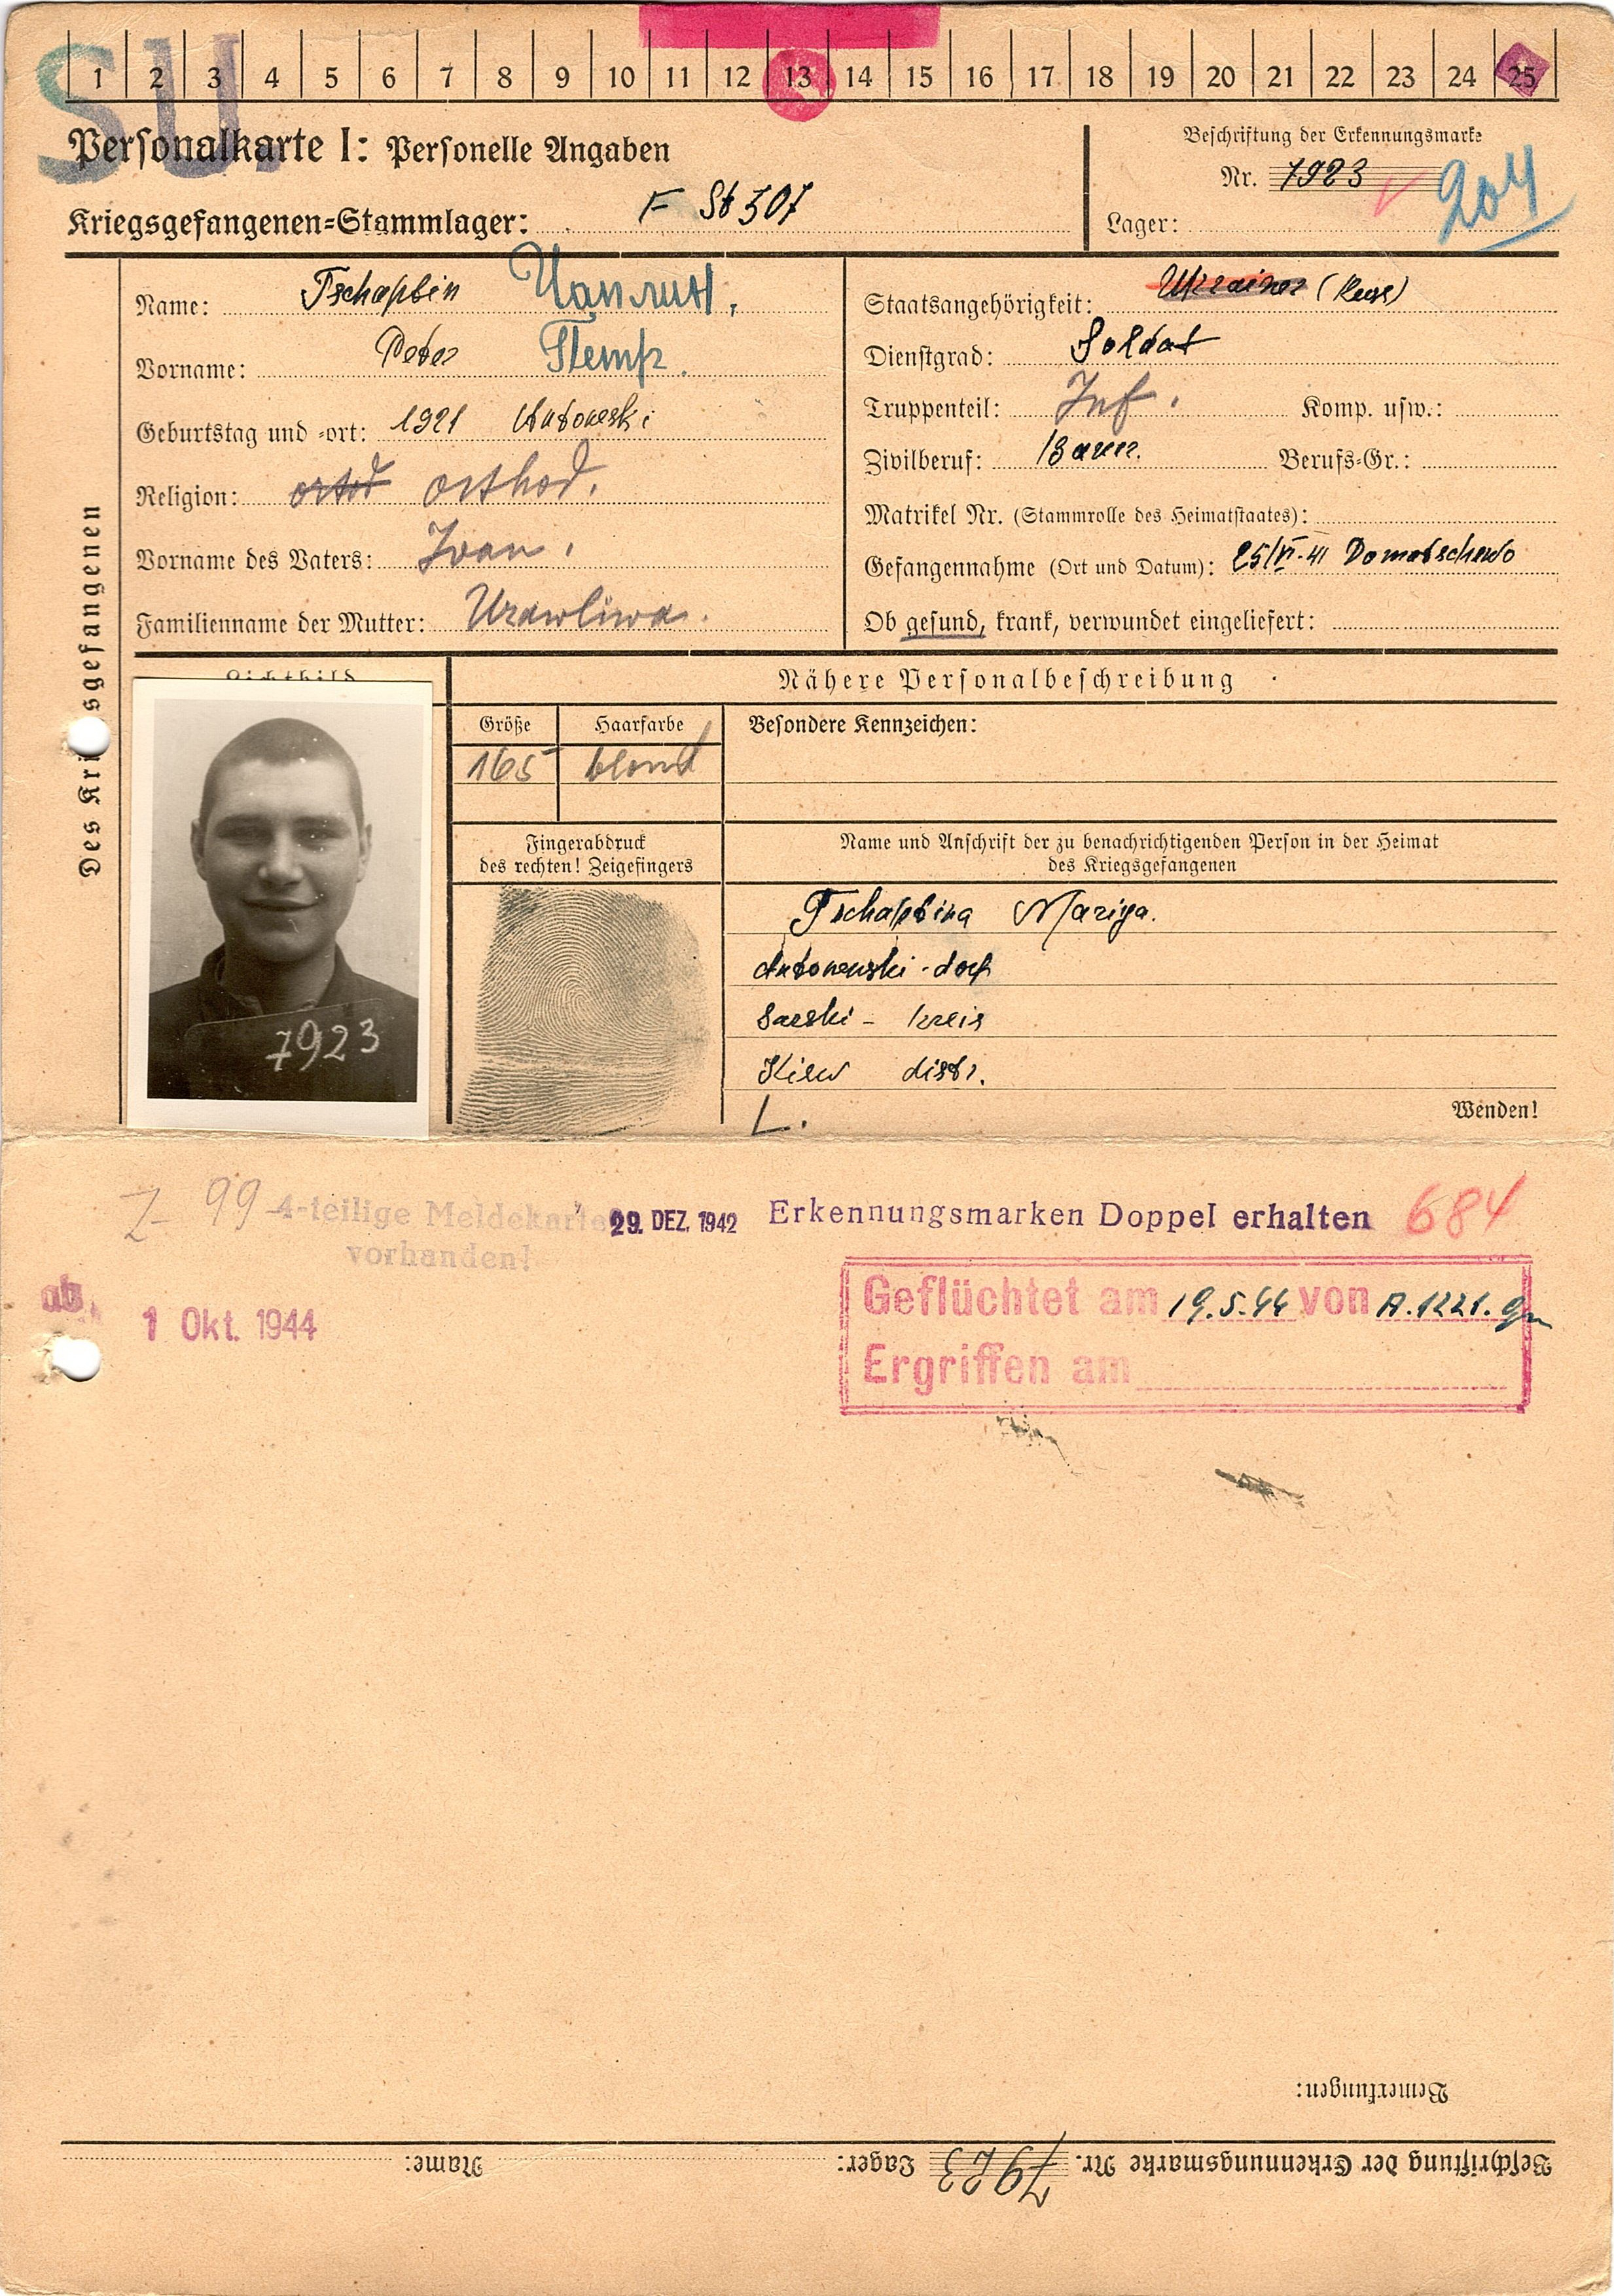 SU.
1 2 3 4 5 6 7 8 9 10 11 12 13 14 15 16 17 18 19 20 21 22 23 24 25
Personalkarte I: Personelle Angaben
Kriegsgefangenen-Stammlager: F St 307
Beschriftung der Erkennungsmarke
Nr. 7923
Lager: 204
Des Kri sgefangenen
Name: Tschaplin Чаплин.
Vorname: Peter Петр.
Geburtstag und -ort: 1921 Antonewski
Religion: ortod orthod.
Vorname des Vaters: Iwan.
Familienname der Mutter: Urawliwa.
Staatsangehörigkeit: Ukrainer (Russe)
Dienstgrad: Soldat
Truppenteil: Inf. Komp. usw.:
Zivilberuf: Bauer. Berufs-Gr.:
Matrikel Nr. (Stammrolle des Heimatstaates):
Gefangennahme (Ort und Datum): 25/VI-41 Domatschewo
Ob gesund, krank, verwundet eingeliefert:
Lichtbild
7923
Nähere Personalbeschreibung
Größe Haarfarbe Besondere Kennzeichen:
165 blond
Fingerabdruck
des rechten! Zeigefingers
Name und Anschrift der zu benachrichtigenden Person in der Heimat
des Kriegsgefangenen
Tschaplina Mariya.
Antonewski-dorf
- kreis
Kiew distr.
L.
Wenden!
Z- 99 4-teilige Meldekarte
vorhanden!
29. DEZ. 1942 Erkennungsmarken Doppel erhalten 684
ab.
1 Okt. 1944
Geflüchtet am 19.5.44 von A.1221.
Ergriffen am
Bemerkungen:
Beschriftung der Erkennungsmarke Nr. 7923 Lager: Name: